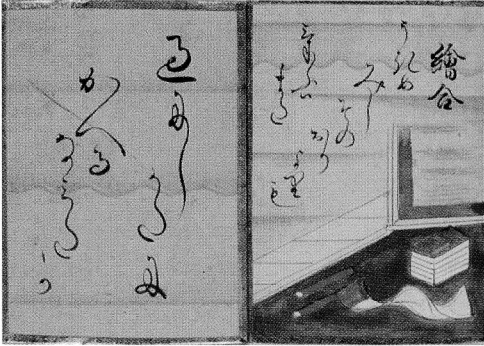 繪合
うきめ
みし
その
おり
よりも
けふは
また
過にし
かたに
かへる
なみた
か